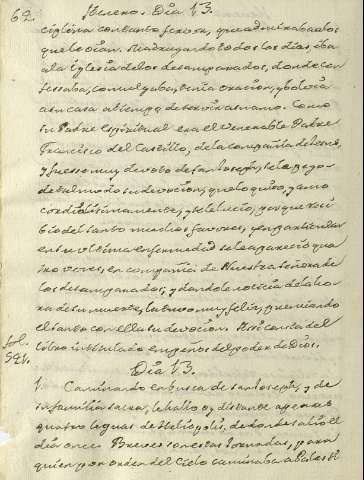 62. Henero. Dia 13.
Yglesia con tanto fervor, que admiraba a todos
que lo veian. Madrugando todos los dias, iba
a la Iglesia de los desamparados, donde con
fesaba, comulgaba, tenia oracion, y bolvia
a su casa a tiempo de servir a su amo. Como
su Padre Espiritual era el Venerable Padre
Francisco del Castillo, de la compañia de Jesus,
y fuesse muy devoto de san Joseph, se le pego
de tal modo su devocion, que lo quiso, y amo
cordialissimamente, y se le lucio, porque reci
bio del santo muchos favores, y en particular
en su ultima enfermedad se le aparecio qua
tro veces, en compañia de Nuestra señora de
los desamparados, y dandole noticia de la ho
ra de su muerte, la tuvo muy feliz, premiando
el santo con ella su devocion. Assi consta del
libro intitulado empeños del poder de Dios.
fol.
521.
Dia 13.
1. Caminando en busca de san Joseph, y de
su familia sacra, le hallo oy, distante apenas
quatro leguas de Heliopolis, de donde salio el
dia once. Breves son estas jornadas, para
quien por orden del Cielo caminaba a Palesti